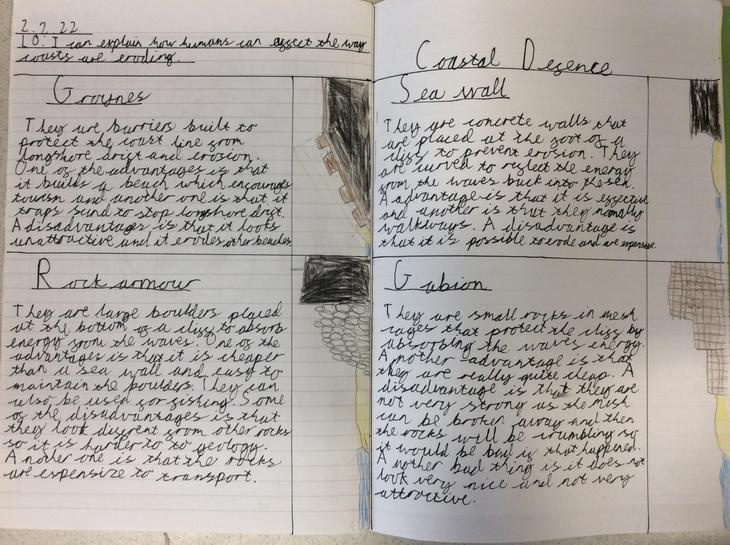 2.2.22
LO: I can explain how humans can affect the way
coasts are eroding.
Groynes
They are barriers built to
protect the coast line from
longshore drift and erosion.
One of the advantages is that
it builds a beach which encourages
tourism and another one is that it
traps sand to stop longshore drift.
A disadvantages is that it looks
unattractive and it erodes other beaches
Rock armour
They are large boulders placed
at the bottom of a cliff to absorb
energy from the waves. One of the
advantages is that it is cheaper
than a sea wall and easy to
maintain the boulders. They can
also be used for fishing. Some
of the disadvantages is that
they look different from other rocks
so it is harder to to geology.
Another one is that the rocks
are expensize to transport.
Coastal Defence
Sea wall
They are concrete walls that
are placed at the foot of a
cliff to prevent erosion. They
are curved to reflect the energy
from the waves back into the sea.
A advantage is that it is effective
and another is that they normally
walkways. A disadvantage is
that it is possible to erode and are expensive.
Gabion
They are small rocks in mesh
cages that protect the cliff by
absorbing the waves energy.
Another advantage is that
they are really quite cheap. A
disadvantage is that they are
not very strong as the mesh
can be broken away and then
the rocks will be crumbling so
it would be bad if that happened.
Another bad thing is it does not
look very nice and not very
attractive.